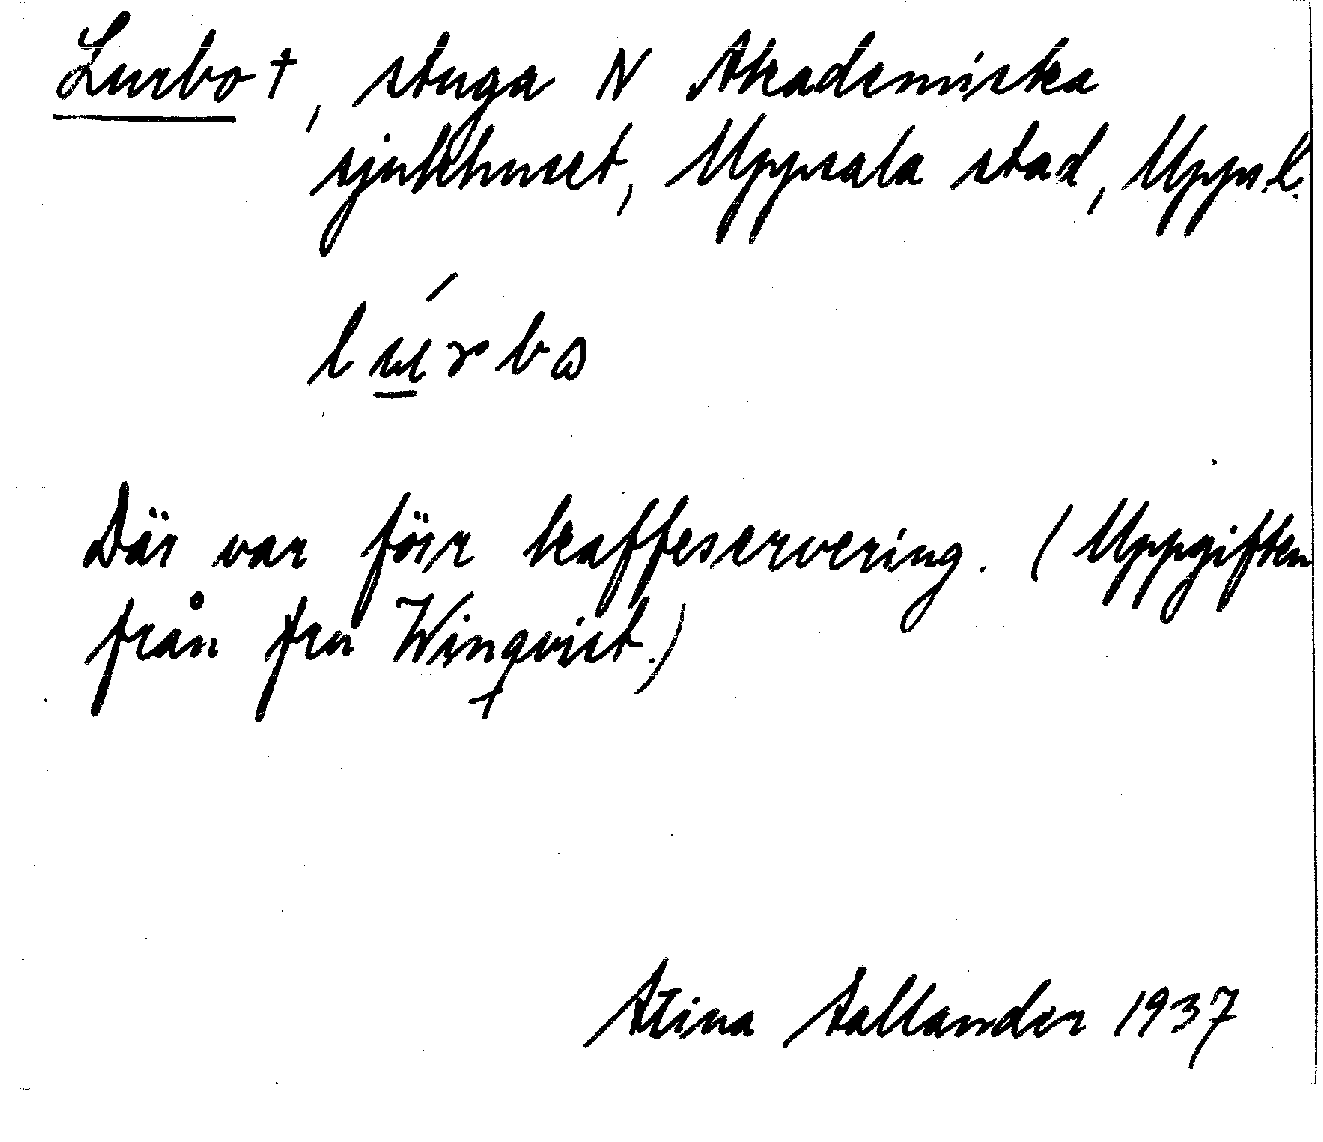 Lurbo †, stuga N Akademiska
sjukhuset, Uppsala stad, Upps.l.
lúrbω
Där var förr kaffeservering. (Uppgiften
från fru Winqvist.)
Stina Sallander 1937